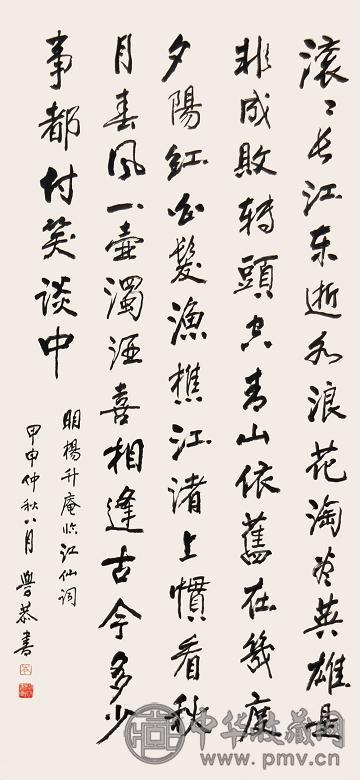 滚〻长江东逝水浪花淘尽英雄是
非成敗转頭空青山依舊在幾度
夕陽红白髮漁樵江渚上慣看秋
月春风一壺濁酒喜相逢古今多少
事都付笑谈中
明楊升庵临江仙詞
甲申仲秋八月 恭書
中华收藏网
www.pmv.cn